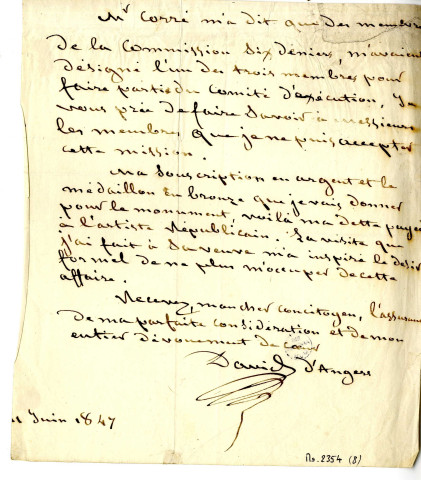 Mr Corré m'a dit que des membres
de la Commission Sixdéniers, m'avaient
désigné l'un des trois membres pour
faire partie du Comité d'exécution, je
vous prie de faire Savoir à messieurs
les membres que je ne puis accepter
cette mission.
Ma Souscription en argent et le
médaillon en bronze que je vais donner
pour le monument, voilà ma dette payée
à l'artiste Républicain. La visite que
j'ai fait à Sa veuve m'a inspiré le désir
formel de ne plus m'occuper de cette
affaire.
Recevez, mon cher concitoyen, l'assurance
de ma parfaite considération et de mon
entier dévouement de cœur
David d'Angers
Juin 1847
Ms. 2354 (8)